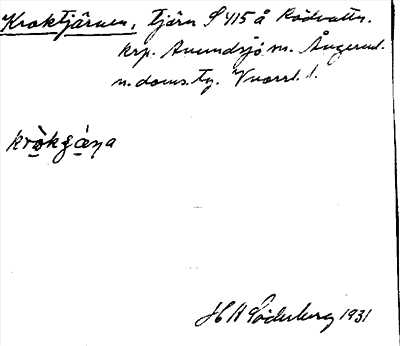 Kroktjärnen, tjärn S 415 å Rödvattn.
krp. Anundsjö sn. Ångerml.
n. doms. tg. Vnorrl. l.
kròkgàŋa
H H Söderberg 1931